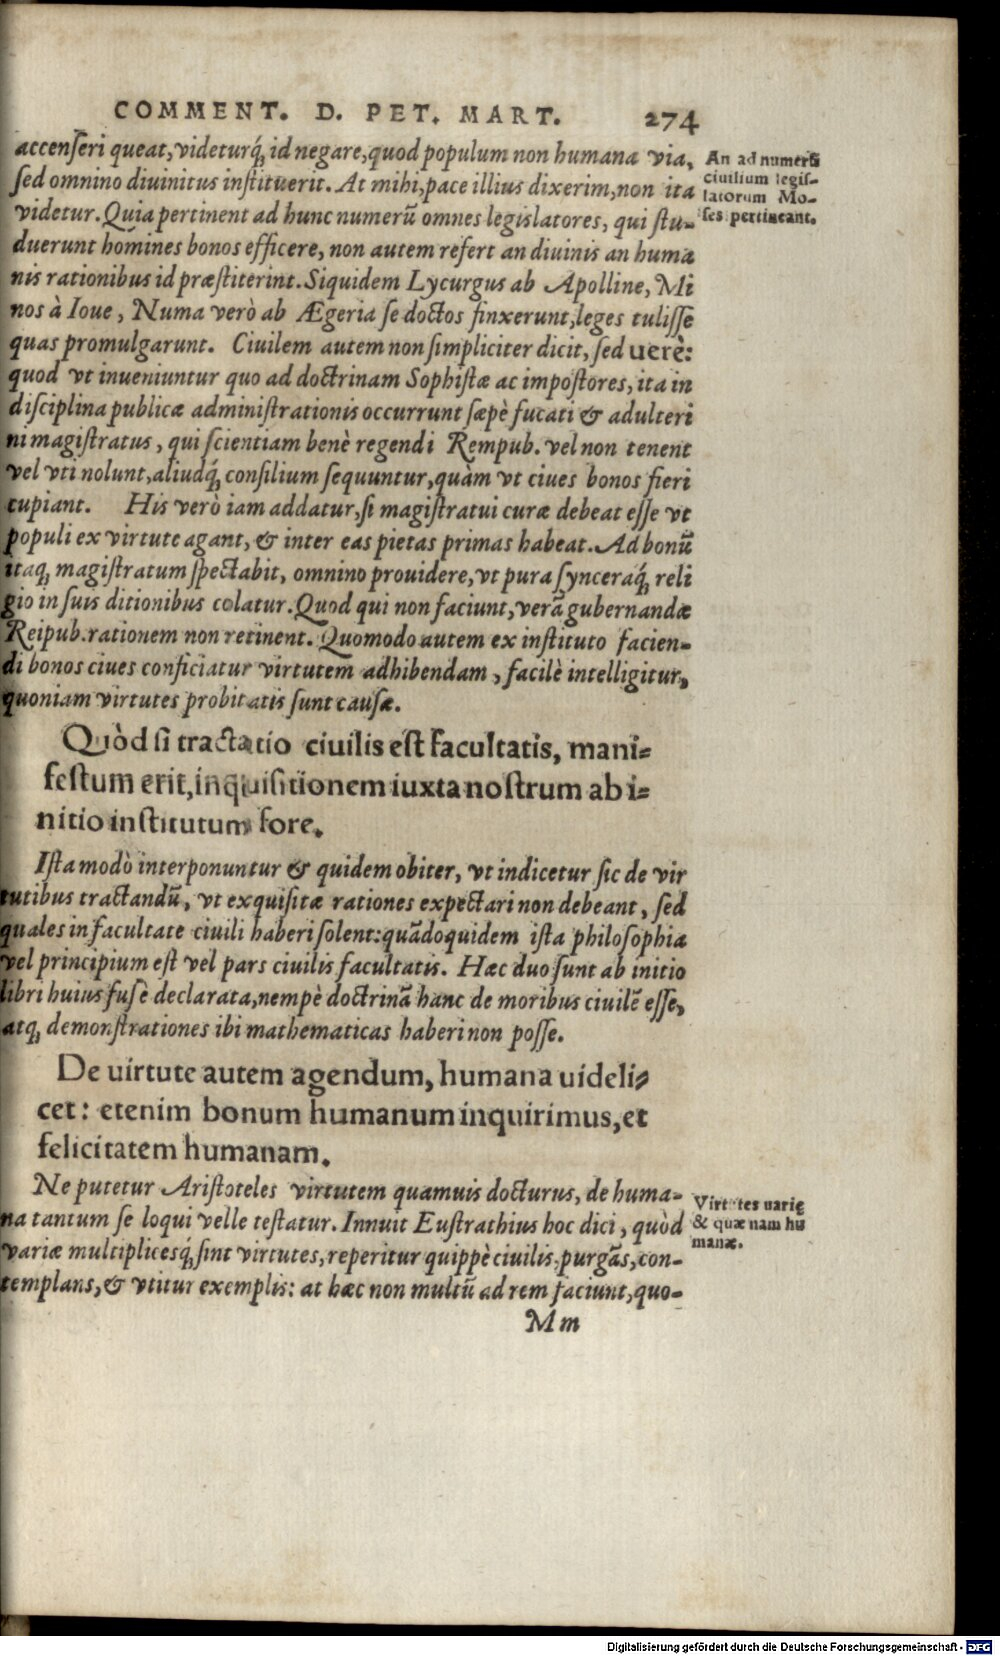 COMMENT. D. PET. MART. 274
accenſeri queat, videturq́; id negare, quod populum non humana via,
ſed omnino diuinitus inſtituerit. At mihi, pace illius dixerim, non ita
videtur. Quia pertinent ad hunc numerū omnes legislatores, qui ſtu-
duerunt homines bonos efficere, non autem refert an diuinis an huma
nis rationibus id præſtiterint. Siquidem Lycurgus ab Apolline, Mi
nos à Ioue, Numa verò ab Ægeria ſe doctos finxerunt, leges tuliſſe
quas promulgarunt. Ciuilem autem non ſimpliciter dicit, ſed uerè:
quod vt inueniuntur quo ad doctrinam Sophiſtæ ac impoſtores, ita in
diſciplina publicæ adminiſtrationis occurrunt ſæpè fucati & adulteri
ni magiſtratus, qui ſcientiam benè regendi Rempub. vel non tenent
vel vti nolunt, aliudq́; conſilium ſequuntur, quàm vt ciues bonos fieri
cupiant. His verò iam addatur, ſi magiſtratui curæ debeat eſſe vt
populi ex virtute agant, & inter eas pietas primas habeat. Ad bonū
itaq; magiſtratum ſpectabit, omnino prouidere, vt pura ſynceraq́; reli
gio in ſuis ditionibus colatur. Quod qui non faciunt, verā gubernandæ
Reipub. rationem non retinent. Quomodo autem ex inſtituto facien-
di bonos ciues conficiatur virtutem adhibendam, facilè intelligitur,
quoniam virtutes probitatis ſunt cauſæ.
Quòd ſi tractatio ciuilis eſt facultatis, mani-
feſtum erit, inquiſitionem iuxta noſtrum ab i-
nitio inſtitutum fore.
Iſta modò interponuntur & quidem obiter, vt indicetur ſic de vir
tutibus tractandū, vt exquiſitæ rationes expectari non debeant, ſed
quales in facultate ciuili haberi ſolent: quādoquidem iſta philoſophia
vel principium eſt vel pars ciuilis facultatis. Hæc duo ſunt ab initio
libri huius fuſè declarata, nempè doctrinā hanc de moribus ciuilē eſſe,
atq; demonſtrationes ibi mathematicas haberi non poſſe.
De uirtute autem agendum, humana uideli-
cet: etenim bonum humanum inquirimus, et
felicitatem humanam.
Ne putetur Ariſtoteles virtutem quamuis docturus, de huma-
na tantum ſe loqui velle teſtatur. Innuit Euſtrathius hoc dici, quòd
variæ multiplicesq́; ſint virtutes, reperitur quippè ciuilis, purgās, con-
templans, & vtitur exemplis: at hæc non multū ad rem faciunt, quo-
Mm
An ad numerū
ciuilium legiſ-
latorum Mo-
ſes pertineant.
Virtutes uarię
& quæ nam hu
manæ.
Digitalisierung gefördert durch die Deutsche Forschungsgemeinschaft - DFG